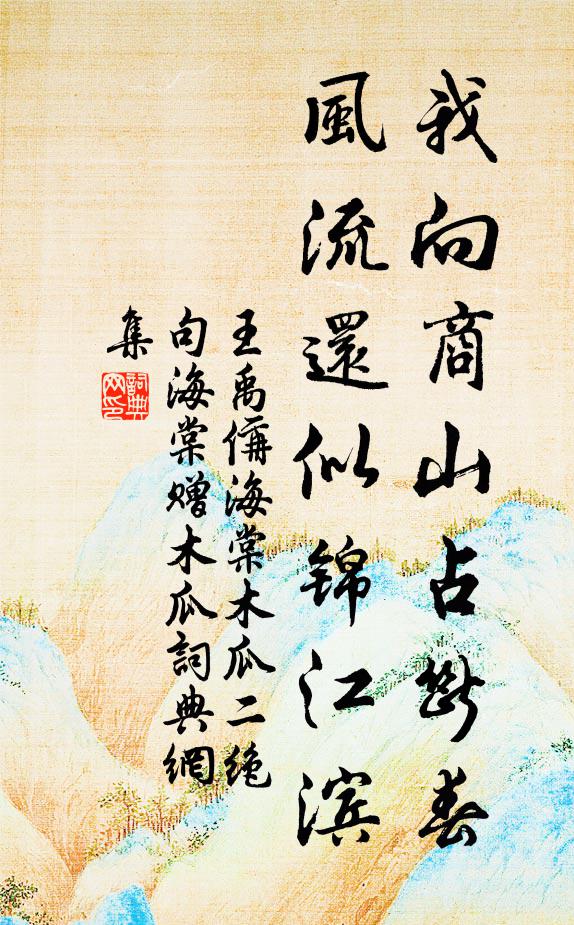 我向商山占断春
風流還似锦江滨
王禹偁海棠木瓜二绝
句海棠赠木瓜詞典網
集
詞典
网印